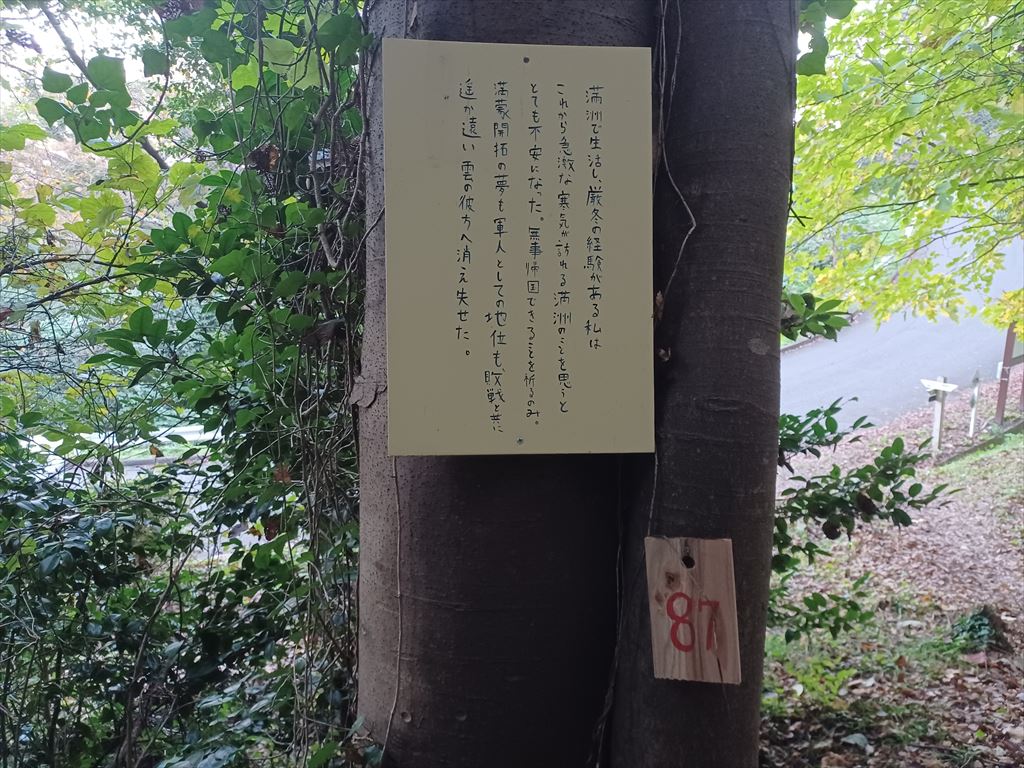 満洲で生活し、厳冬の経験がある私は
これから急激な寒気が訪れる満洲のことを思うと
とても不安になった。無事帰国できることを祈るのみ。
満蒙開拓の夢も軍人としての地位も、敗戦と共に
遙か遠い雲の彼方へ消え失せた。
87